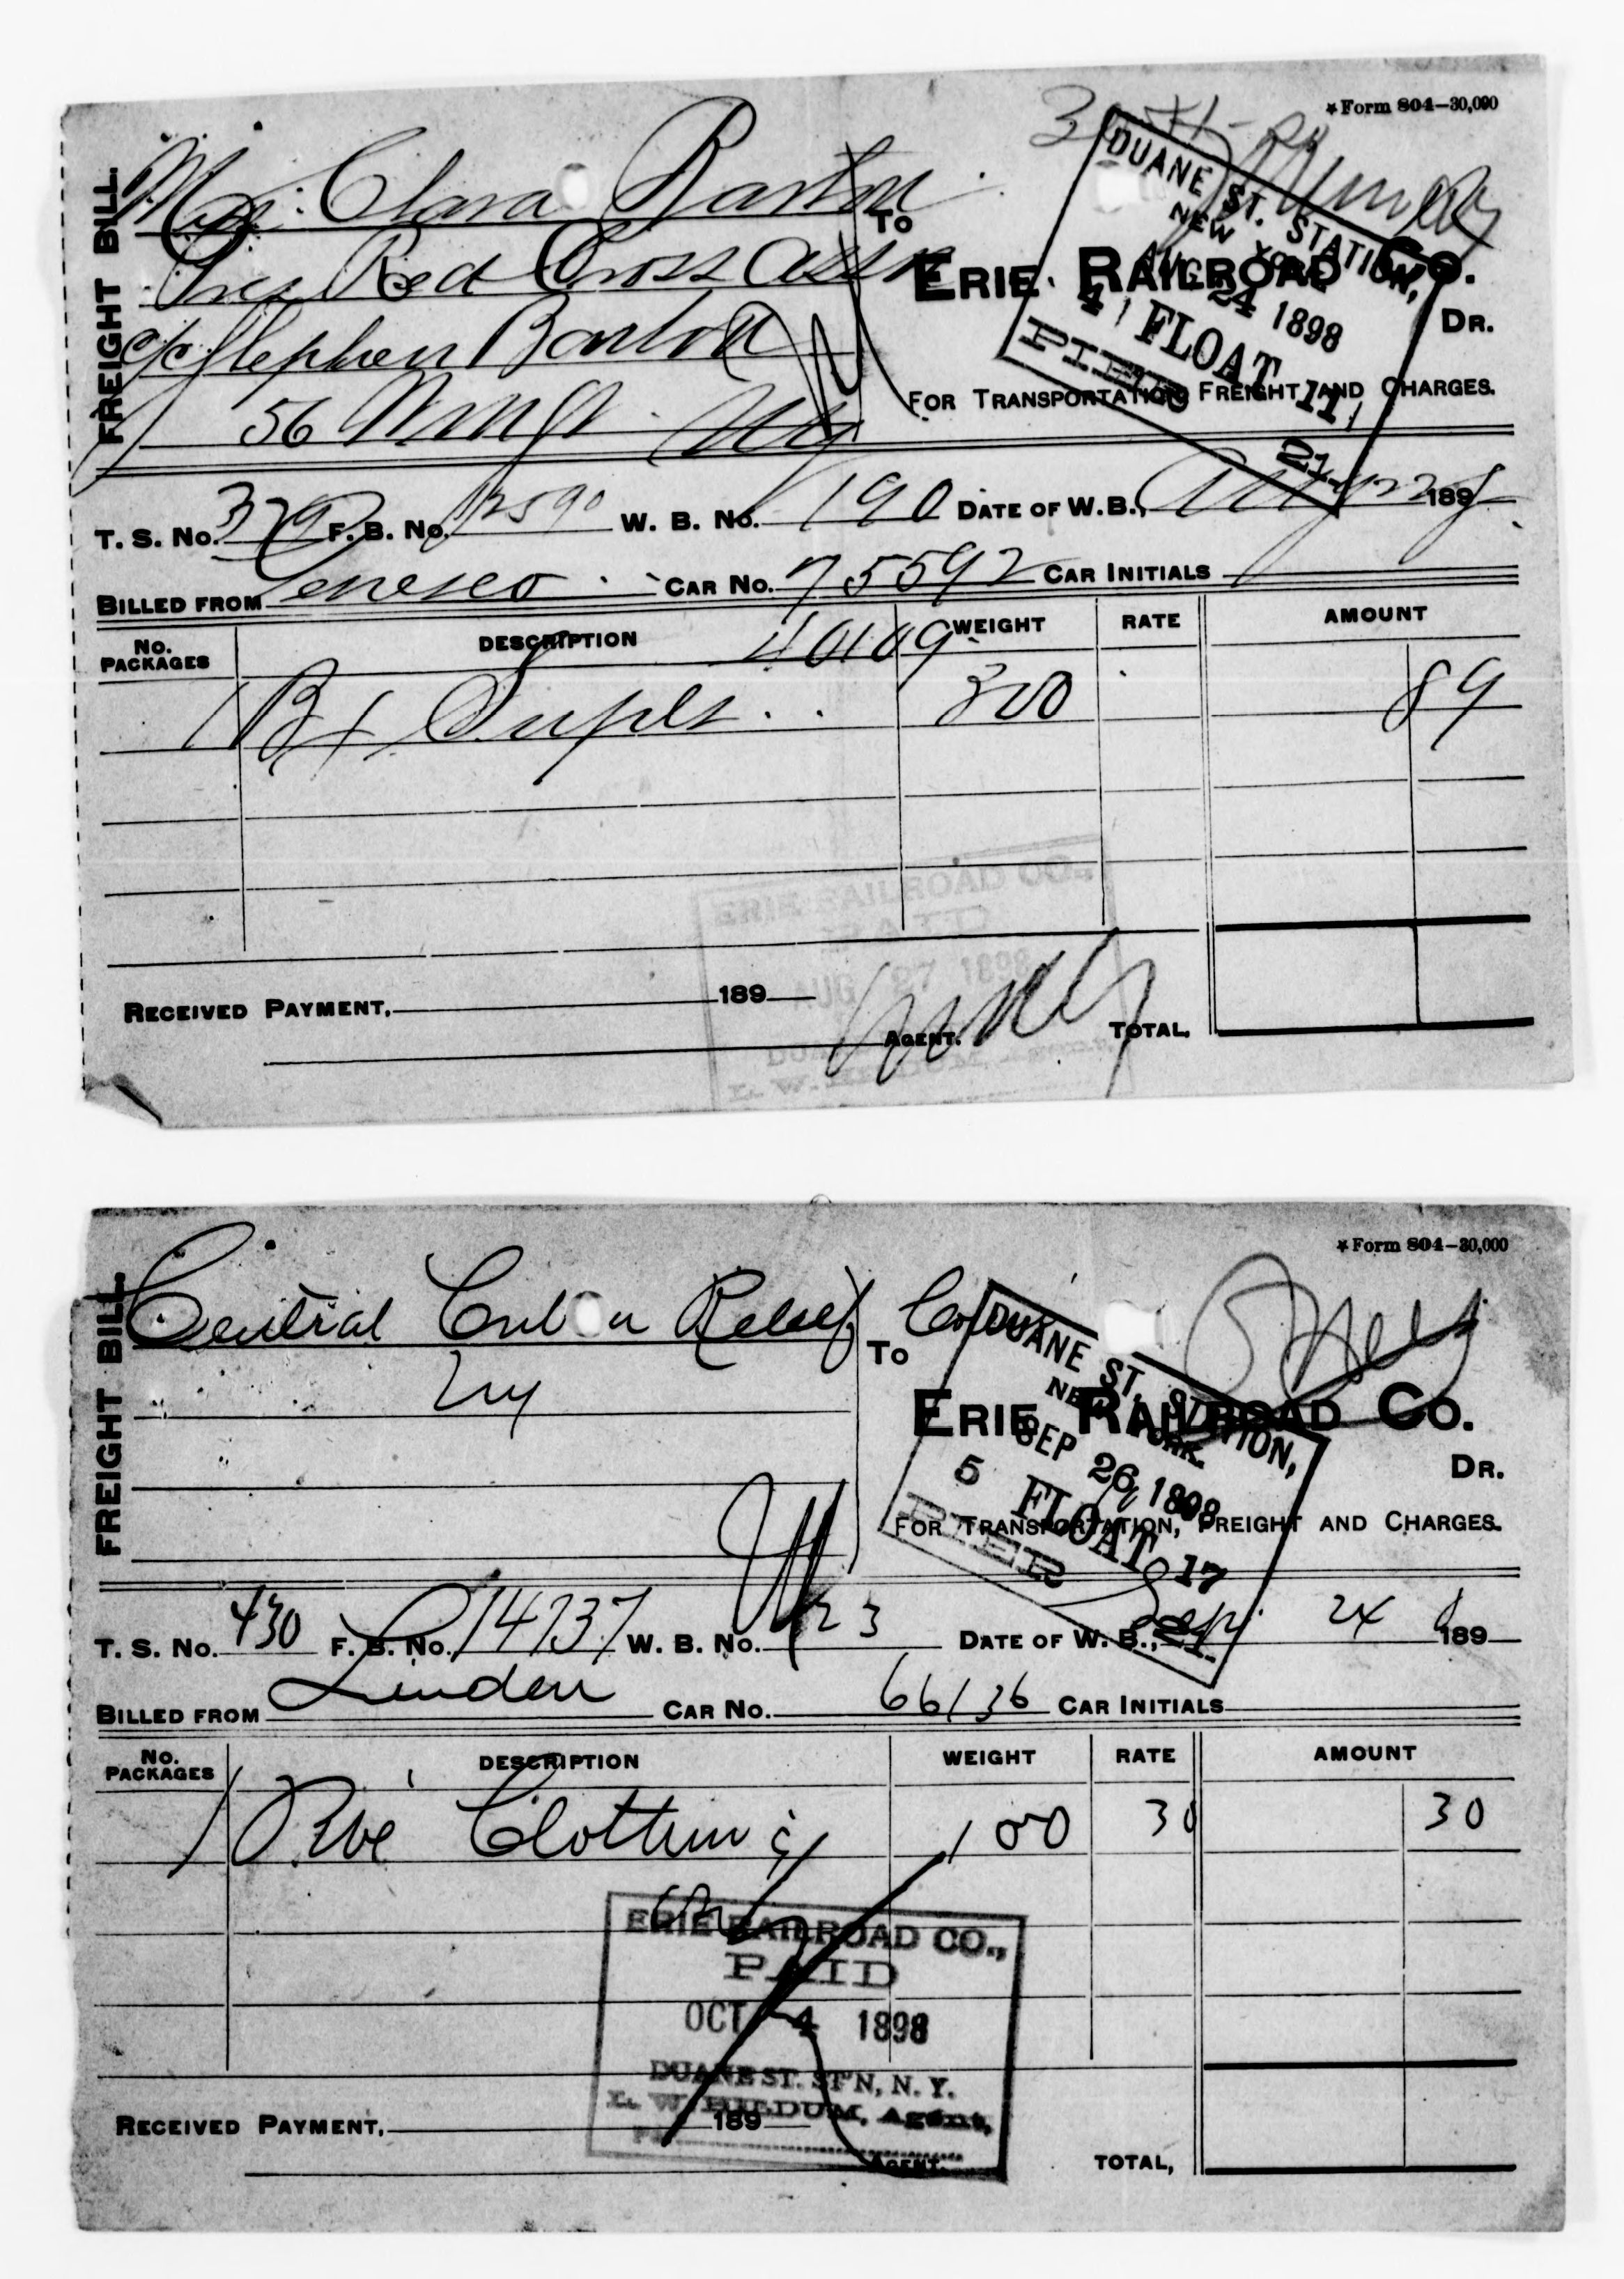 *Form 804—30,000
FREIGHT BILL.
Miss Clara Barton
Pres Red Cross Assn
c/o Stephen Barton
56
TO
ERIE RAILROAD CO.
DR.
FOR TRANSPORTATION, FREIGHT AND CHARGES.
DUANE ST. STATION,
NEW YORK.
AUG 24 1898
4 FLOAT 11
PIER 21
T. S. No. 329 F. B. No. 12590 W. B. No. 190 DATE OF W. B., Aug 22 1898
BILLED FROM Geneseo CAR No. 75592 CAR INITIALS
40109
No. PACKAGES DESCRIPTION WEIGHT RATE AMOUNT
1 Bx Supls 300 89
ERIE RAILROAD CO.,
PAID
AUG 27 1898
L. W. HILDUM, Agent
RECEIVED PAYMENT, 189
AGENT. TOTAL,
*Form 804—30,000
FREIGHT BILL.
Central Cuban Relief Com
NY
TO
ERIE RAILROAD CO.
DR.
FOR TRANSPORTATION, FREIGHT AND CHARGES.
DUANE ST. STATION,
NEW YORK.
SEP 26 1898
5 FLOAT 17
PIER 21
T. S. No. 430 F. B. No. 14737 W. B. No. 123 DATE OF W. B., Sep 24 1898
BILLED FROM Linden CAR No. 66136 CAR INITIALS
No. PACKAGES DESCRIPTION WEIGHT RATE AMOUNT
1 Bx Clothing 100 30 30
ERIE RAILROAD CO.,
PAID
OCT 4 1898
DUANE ST. ST'N, N. Y.
L. W. HILDUM, Agent,
RECEIVED PAYMENT, 189
AGENT. TOTAL,